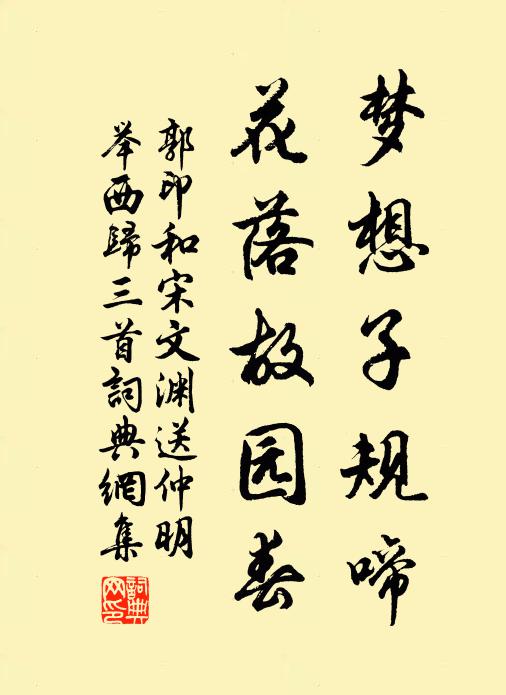 梦想子规啼
花落故园春
郭印和宋文渊送仲明
举西歸三首詞典網集
詞典网印